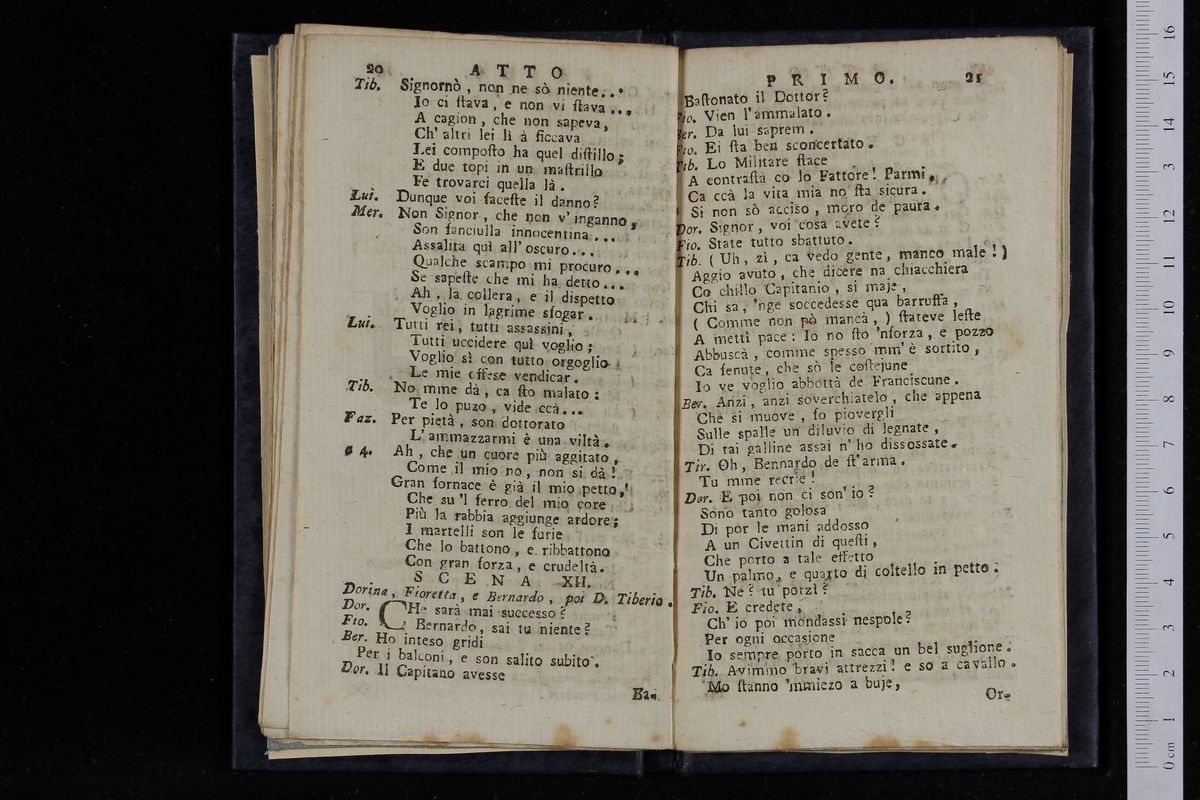 20 ATTO
Tib. Signornò, non ne sò niente...
Io ci ſtava, e non vi ſtava...
A cagion, che non sapeva,
Ch' altri lei lì à ficcava
Lei compoſto ha quel diſtillo;
E due topi in un maſtrillo
Fe trovarci quella là.
Lui. Dunque voi faceſte il danno?
Mer. Non Signor, che non v' inganno,
Son fanciulla innocentina...
Assalita quì all' oscuro...
Qualche scampo mi procuro...
Se sapeſte che mi ha detto...
Ah, la collera, e il dispetto
Voglio in lagrime sfogar.
Lui. Tutti rei, tutti assassini,
Tutti uccidere quì voglio;
Voglio sì con tutto orgoglio
Le mie offese vendicar.
Tib. No mme dà, ca ſto malato:
Te lo puzo, vide ccà...
Faz. Per pietà, son dottorato
L' ammazzarmi è una viltà.
a 4. Ah, che un cuore più aggitato,
Come il mio no, non si dà!
Gran fornace è già il mio petto,
Che su 'l ferro del mio core
Più la rabbia aggiunge ardore;
I martelli son le furie
Che lo battono, e ribbattono
Con gran forza, e crudeltà.
SCENA XII.
Dorina, Fioretta, e Bernardo, poi D. Tiberio.
Dor. CHe sarà mai successo?
Fio. Bernardo, sai tu niente?
Ber. Ho inteso gridi
Per i balconi, e son salito subito.
Dor. Il Capitano avesse
Ba-
PRIMO. 21
Baſtonato il Dottor?
Fio. Vien l'ammalato.
Ber. Da lui saprem.
Fio. Ei ſta ben sconcertato.
Tib. Lo Militare ſtace
A contraſtà co lo Fattore! Parmi,
Ca ccà la vita mia no ſta sicura.
Si non sò acciso, moro de paura.
Dor. Signor, voi cosa avete?
Fio. State tutto sbattuto.
Tib. (Uh, zì, ca vedo gente, manco male!)
Aggio avuto, che dicere na chiacchiera
Co chillo Capitanio, si maje,
Chi sa, 'nge soccedesse qua barruffa,
(Comme non pò mancà,) ſtateve leſte
A mettì pace: Io no ſto 'nforza, e pozzo
Abbuscà, comme spesso mm' è sortito,
Ca fenute, che sò le coſtejune
Io ve voglio abbottà de Franciscune.
Ber. Anzi, anzi soverchiatelo, che appena
Che si muove, fo piovergli
Sulle spalle un diluvio di legnate,
Di tai galline assai n' ho dissossate.
Tir. Oh, Bennardo de ſt' arma.
Tu mme recrìe!
Dor. E poi non ci son' io?
Sono tanto golosa
Di por le mani addosso
A un Civettin di queſti,
Che porto a tale effetto
Un palmo, e quarto di coltello in petto.
Tib. Ne? tu porzì?
Fio. E credete,
Ch' io poi mondassi nespole?
Per ogni occasione
Io sempre porto in sacca un bel suglione.
Tib. Avimmo bravi attrezzi! e so a cavallo.
Mo ſtanno 'mmiezo a buje,
Or-
0 cm 1 2 3 4 5 6 7 8 9 10 11 12 13 14 15 16